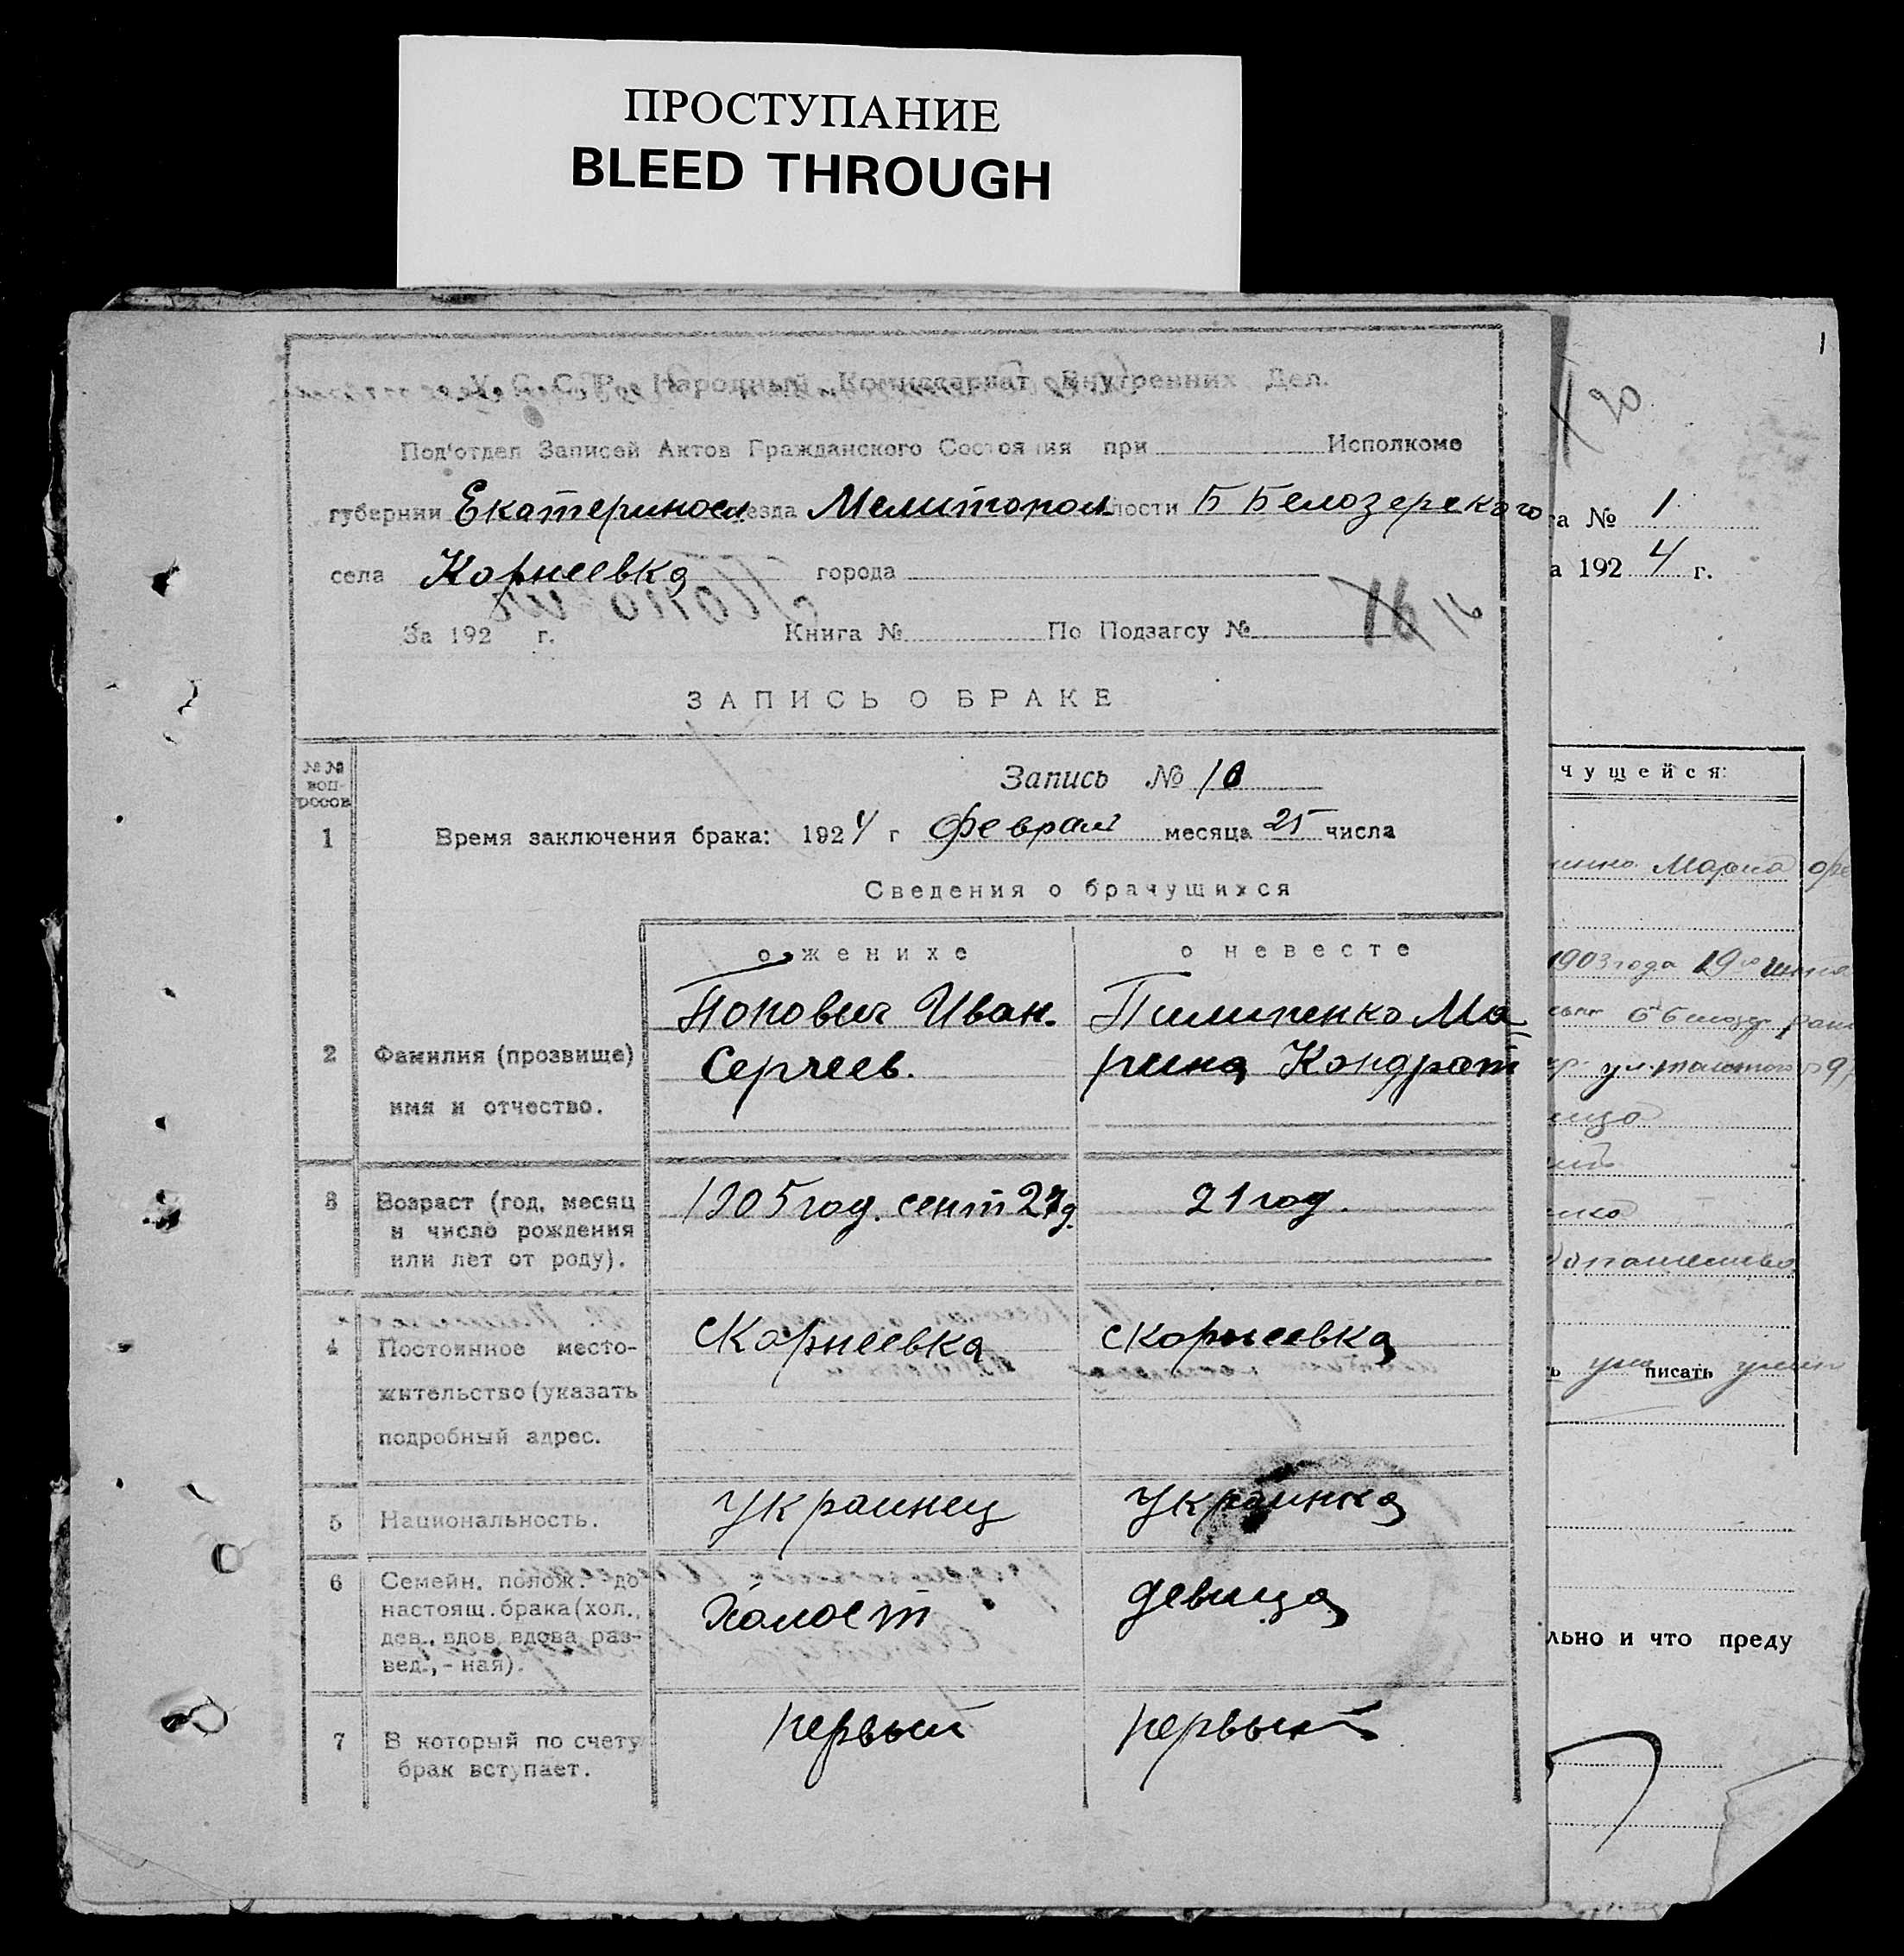 ПРОСТУПАНИЕ
BLEED THROUGH
У. С. С. Р. Народный Комиссариат Внутренних Дел.
Под'отдел Записей Актов Гражданского Состояния при Исполкоме
губернии Екатериносл уезда Мелитопол волости Б Белозерского
села Корнеевка города
За 192 г. Книга № По Подзагсу № 16 16
ЗАПИСЬ О БРАКЕ
№№ воп-
росов
Запись № 10
1 Время заключения брака: 1924 г феврал месяца 25 числа
Сведения о брачущихся
о женихе о невесте
Попович Иван. Пилипенко Ма-
2 Фамилия (прозвище) Сергеев. рина Кондрат
имя и отчество.
3 Возраст (год, месяц 1905 год. сент 27д. 21 год.
и число рождения
или лет от роду).
4 Постоянное место- с Корнеевка с Корнеевка
жительство (указать
подробный адрес.
5 Национальность. Украинец Украинка
6 Семейн. полож. до Холост девица
настоящ. брака (хол.,
дев., вдов, вдова раз-
вед., - ная).
7 В который по счету первый первый
брак вступает.
1
20
га № 1
а 1924 г.
чущейся:
Мария
1903 года 19го
писать
льно и что преду